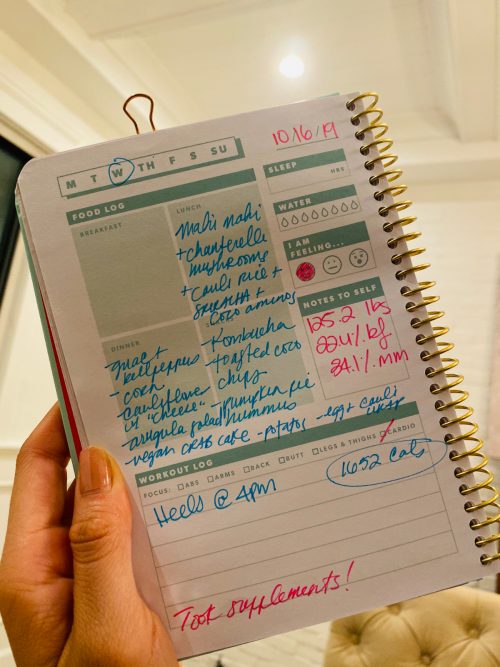 10/16/19
M T W TH F S SU
SLEEP
HRS
FOOD LOG
BREAKFAST
LUNCH
Mahi mahi
+ chanterelle
mushrooms
+ cauli rice +
sriracha +
coco aminos
WATER
I AM
FEELING...
NOTES TO SELF
125.2 lbs
22.4% bf
34.1% mm
DINNER
- guac +
bell peppers
- corn
- cauliflower
w/ "cheese"
- arugula salad
- vegan crab cake - potato - egg + cauli
wrap
- Kombucha
- toasted coco
chips
- pumpkin pie
hummus
WORKOUT LOG
FOCUS: ABS ARMS BACK BUTT LEGS & THIGHS CARDIO
Heels @ 4pm
1652 cals
Took supplements!